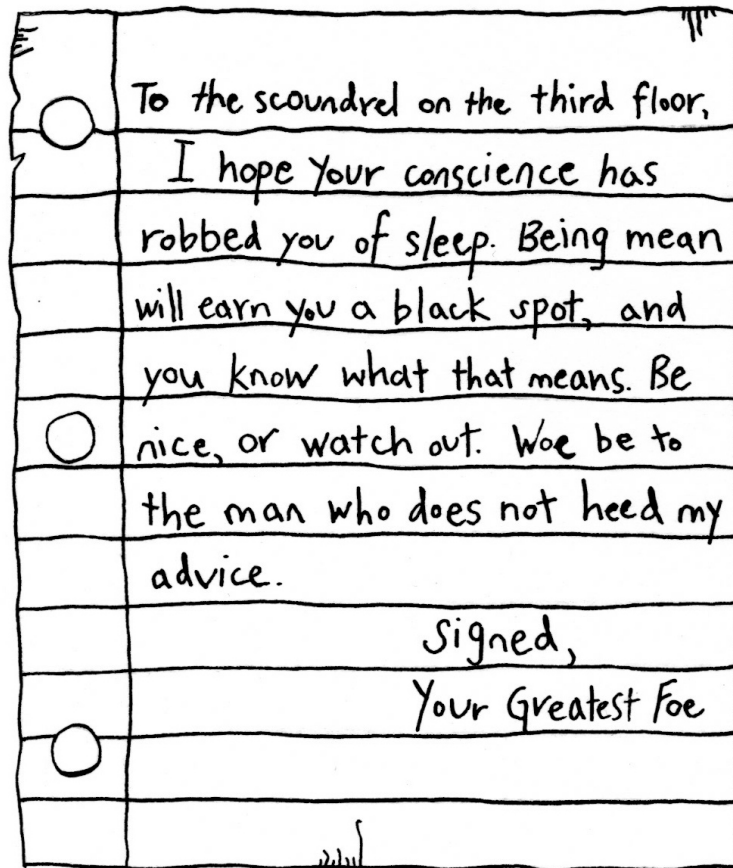 To the scoundrel on the third floor,
I hope your conscience has
robbed you of sleep. Being mean
will earn you a black spot, and
you know what that means. Be
nice, or watch out. Woe be to
the man who does not heed my
advice.
Signed,
Your Greatest Foe